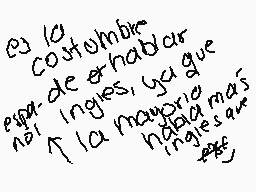 es lo
costumbre
de hablar
ingles, ya que
↑ la mayoria
habla mas
ingles que
españ-
nol